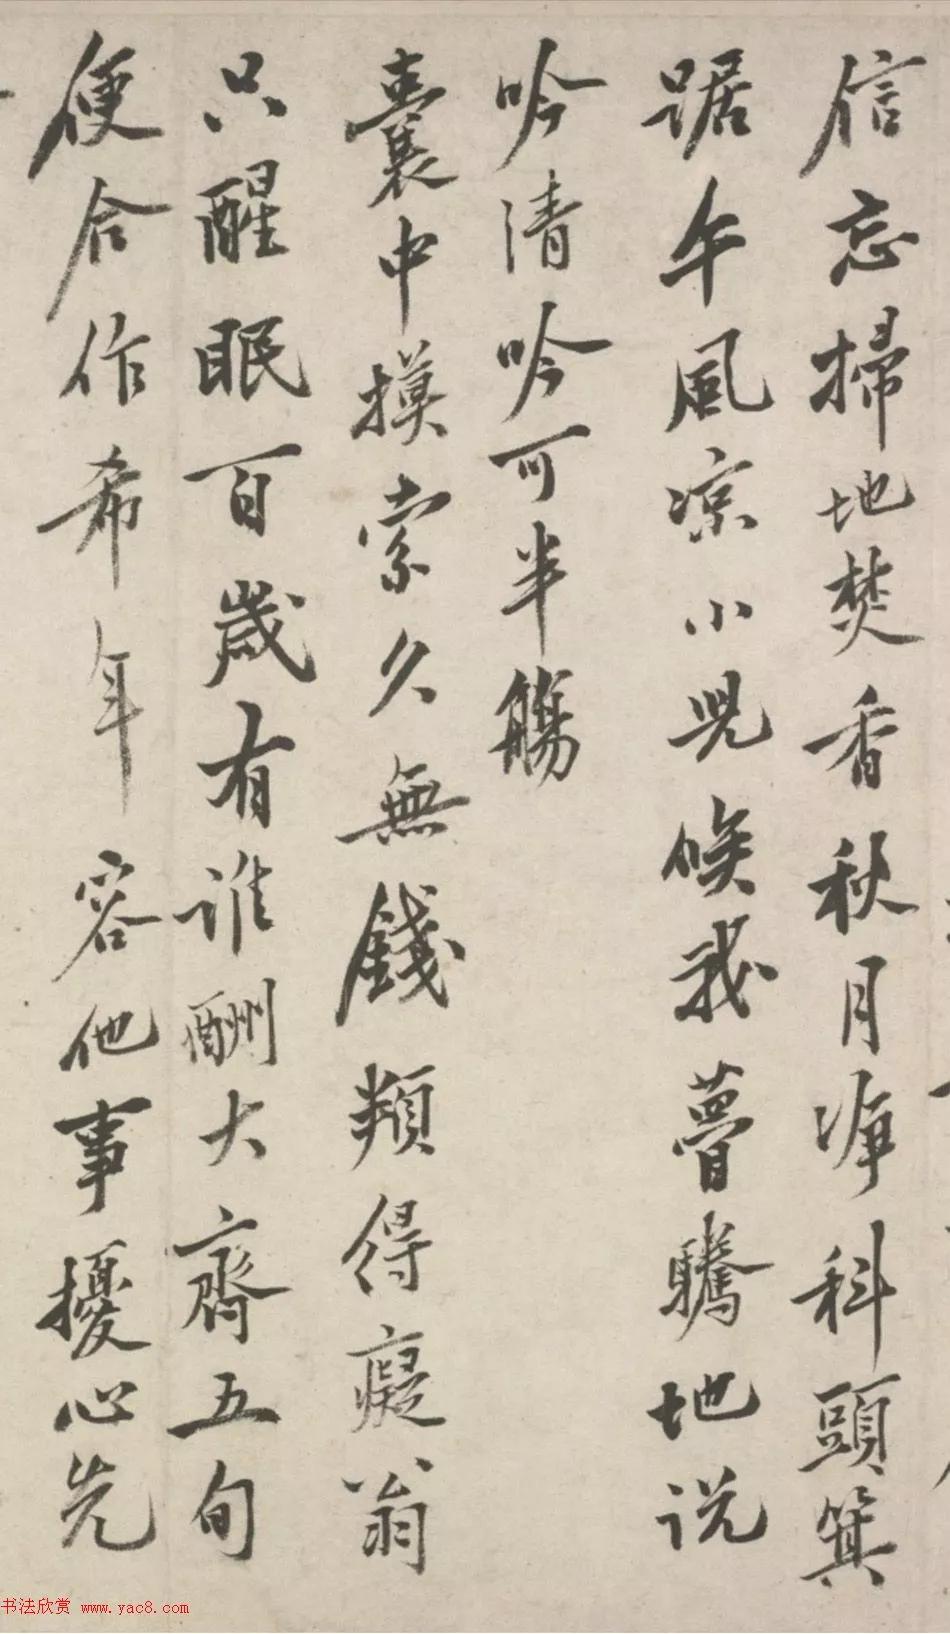 信忘掃地焚香秋月淨科頭箕
踞午風凉小兒候我薈騰地说
吟清吟可半觴
囊中摸索久無錢類得癡翁
只醒眠百歲有谁酬大齊五旬
便合作希年容他事擾心先
书法欣赏 www.yac8.com